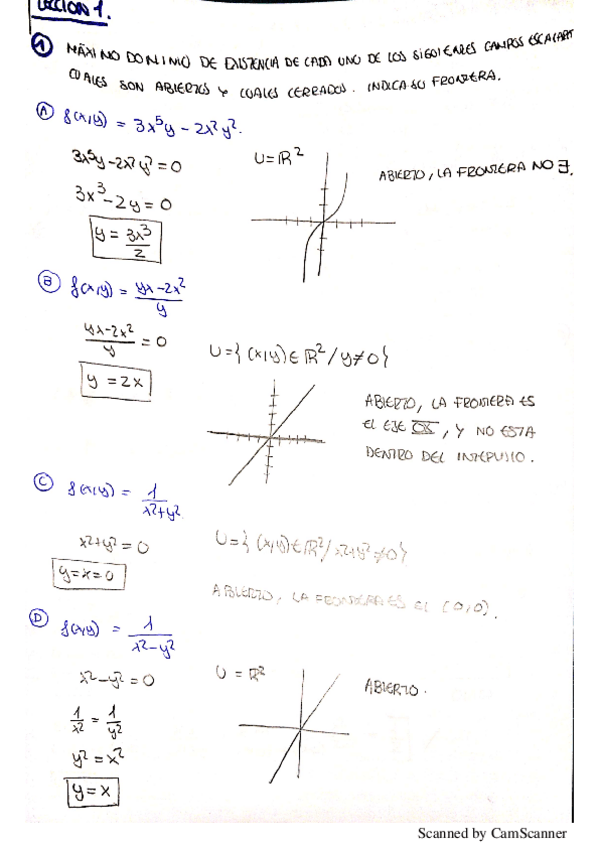 LECCION 1.
1 MÁXIMO DOMINIO DE EXISTENCIA DE CADA UNO DE LOS SIGUIENTES CAMPOS ESCALAR
CUALES SON ABIERTOS Y CUALES CERRADOS. INDICA SU FRONTERA.
A f(x,y) = 3x⁵y - 2x²y².
3x⁵y - 2x²y² = 0
U = ℝ²
ABIERTO, LA FRONTERA NO ∃.
3x³ - 2y = 0
y = 3x³/2
B f(x,y) = yx-2x²/y
yx-2x²/y = 0
U = { (x,y) ∈ ℝ² / y≠0 }
y = 2x
ABIERTO, LA FRONTERA ES
EL EJE OX, Y NO ESTA
DENTRO DEL
C f(x,y) = 1/x²+y²
x²+y² = 0
U = { (x,y) ∈ ℝ² / x²+y² ≠ 0 }
y = x = 0
ABIERTO, LA FRONTERA ES EL (0,0).
D f(x,y) = 1/x²-y²
x²-y² = 0
U = ℝ²
ABIERTO.
1/x² = 1/y²
y² = x²
y = x
Scanned by CamScanner